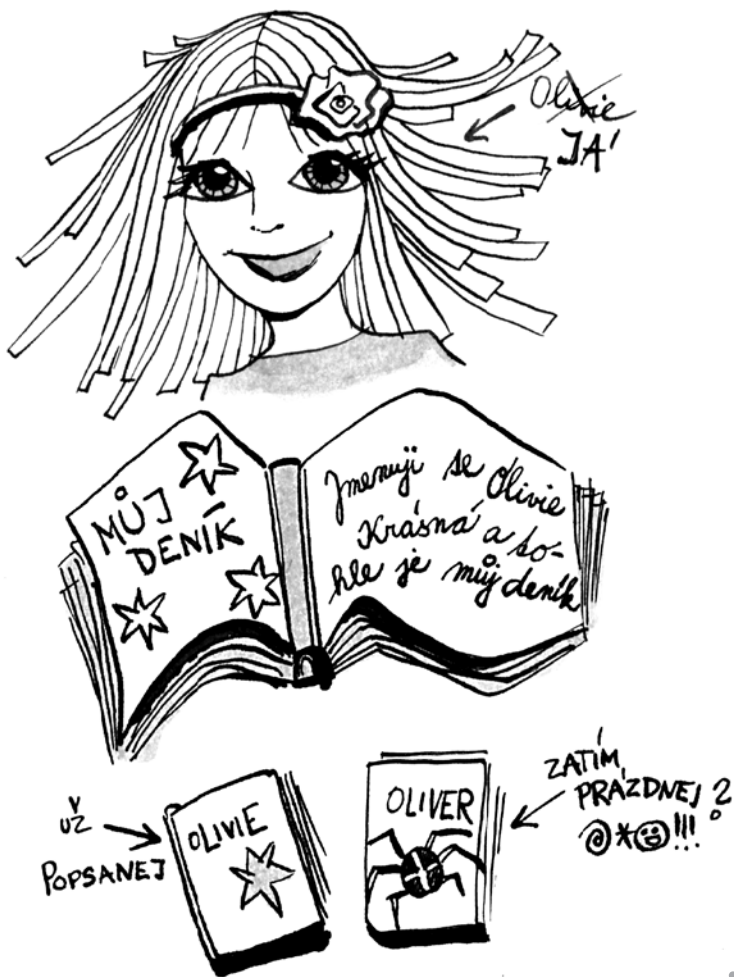 Olivie
JÁ
MŮJ
DENÍK
Jmenuji se Olivie
Krásná a to-
hle je můj deník
UŽ
POPSANEJ
OLIVIE
OLIVER
ZATÍM
PRÁZDNEJ?
@*☺!!!